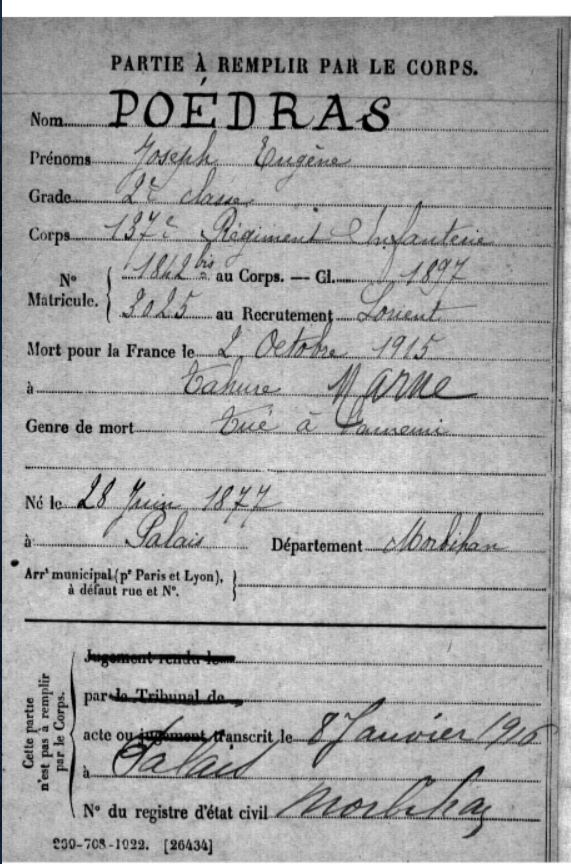 PARTIE À REMPLIR PAR LE CORPS.
Nom POÉDRAS
Prénoms Joseph Eugène
Grade 2e classe
Corps 137e Régiment d'Infanterie
N° Matricule. { 1842 bis au Corps. — Cl. 1897
3025 au Recrutement Lorient
Mort pour la France le 2 Octobre 1915
à Tahure Marne
Genre de mort Tué à l'ennemi
Né le 28 Juin 1877
à Palais Département Morbihan
Arrt municipal (pr Paris et Lyon), à défaut rue et N°. }
Cette partie n'est pas à remplir par le Corps.
Jugement rendu le
par le Tribunal de
acte ou jugement transcrit le 8 Janvier 1916
à Palais
N° du registre d'état civil Morbihan
200-708-1922. [26434]